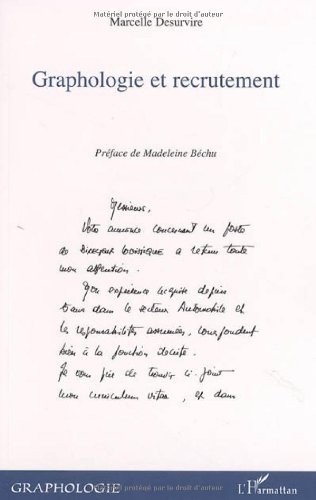 Matériel protégé par le droit d'auteur
Marcelle Desurvire
Graphologie et recrutement
Préface de Madeleine Béchu
Messieurs,
Votre annonce concernant un poste
de DIRECTEUR LOGISTIQUE a retenu toute
mon attention.
Mon expérience acquise depuis
ans dans le secteur Automobile et
les responsabilités assumées, correspondent
bien à la fonction décrite.
Je vous prie de trouver ci-joint
mon curriculum vitae, et dans
GRAPHOLOGIE
L'Harmattan
Matériel protégé par le droit d'auteur